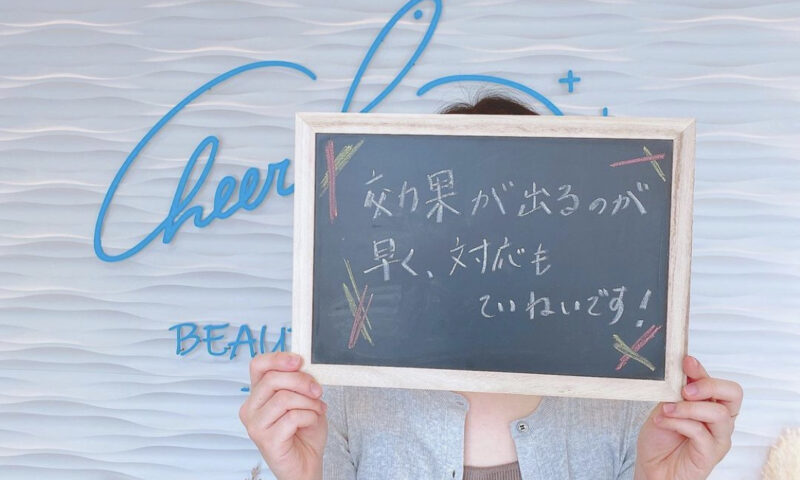 Cheer
BEAU
効果が出るのが
早く、対応も
ていねいです!